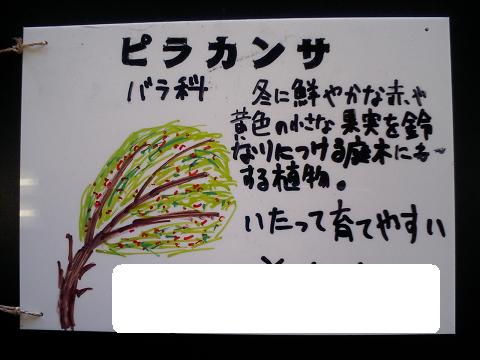 ピラカンサ
バラ科
冬に鮮やかな赤、や
黄色の小さな果実を鈴
なりにつける庭木に
する植物。
いたって育てやすい